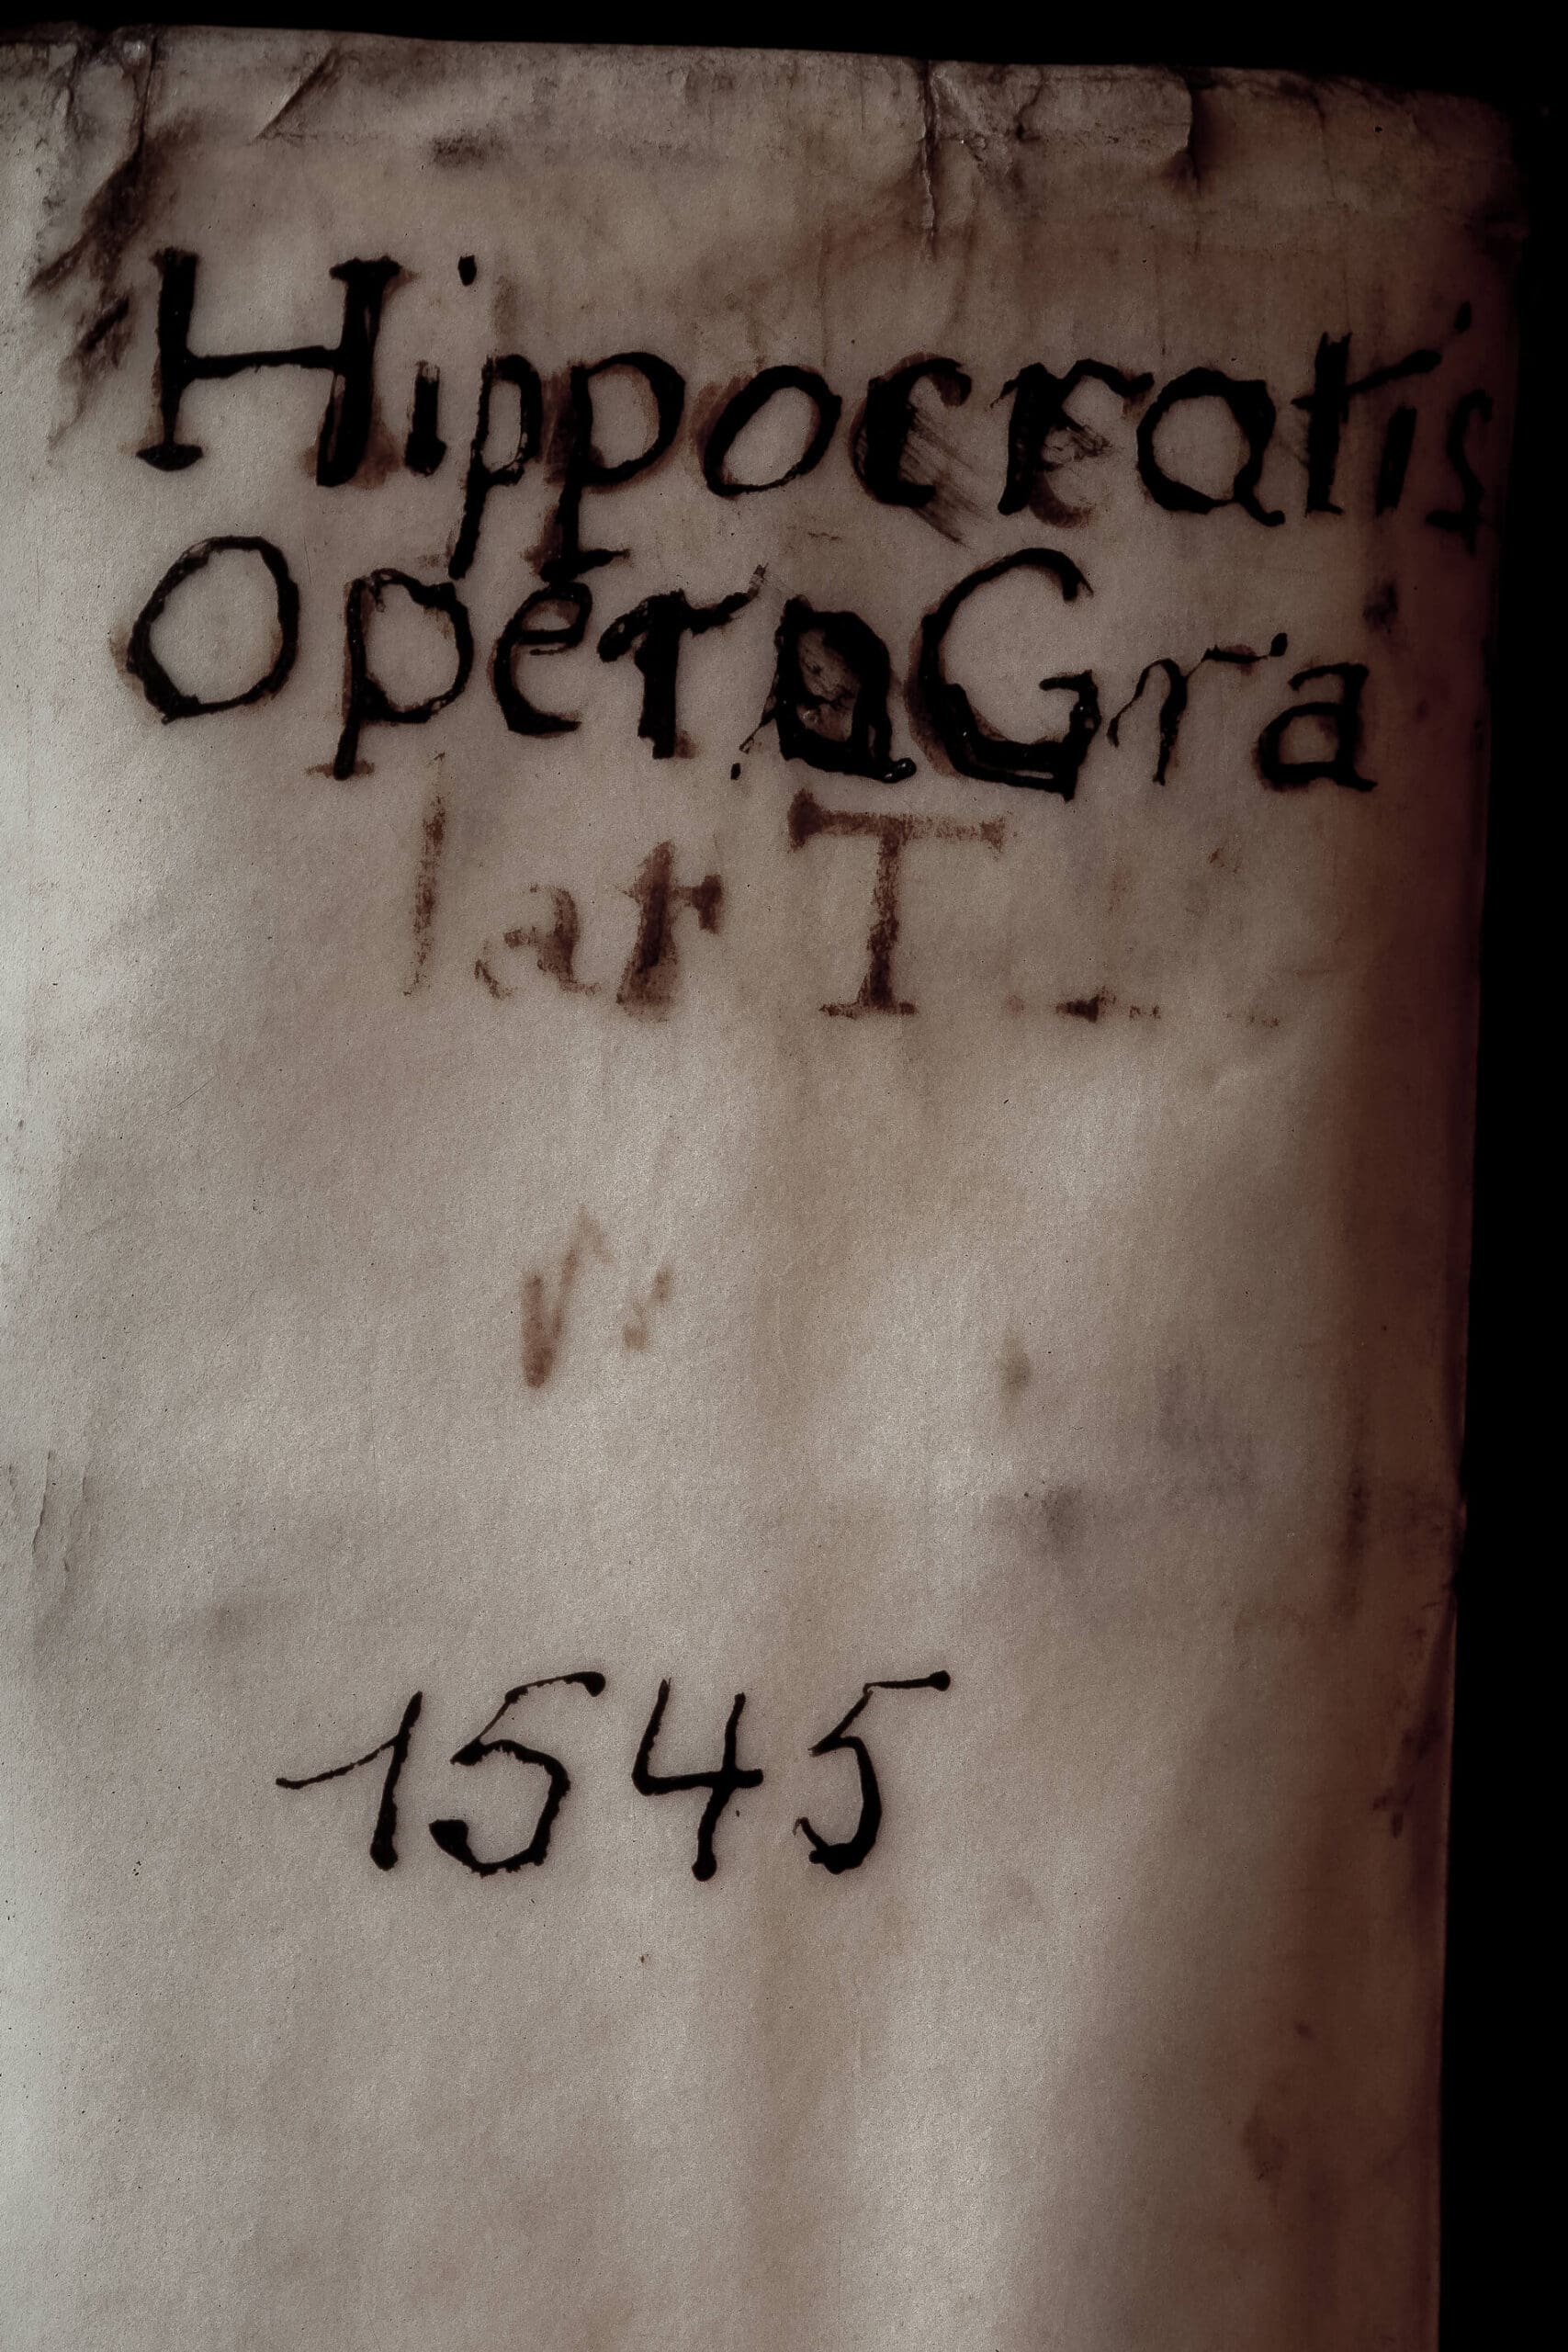 Hippocratis
Opera Gra
lat T
1545